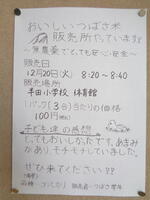 おいしいつばさ米
販売所ですっています!!
〜無農薬でとっても安心・安全〜
販売日
12月20日(火) 8:20〜8:40
販売場所
半田小学校 体育館
1パック(3合)当たりの価格
100円(税込)
子ども達の感想
とってもおいしかったです。あまみ
があり、モチモチしていました。
ぜひ来てください!!